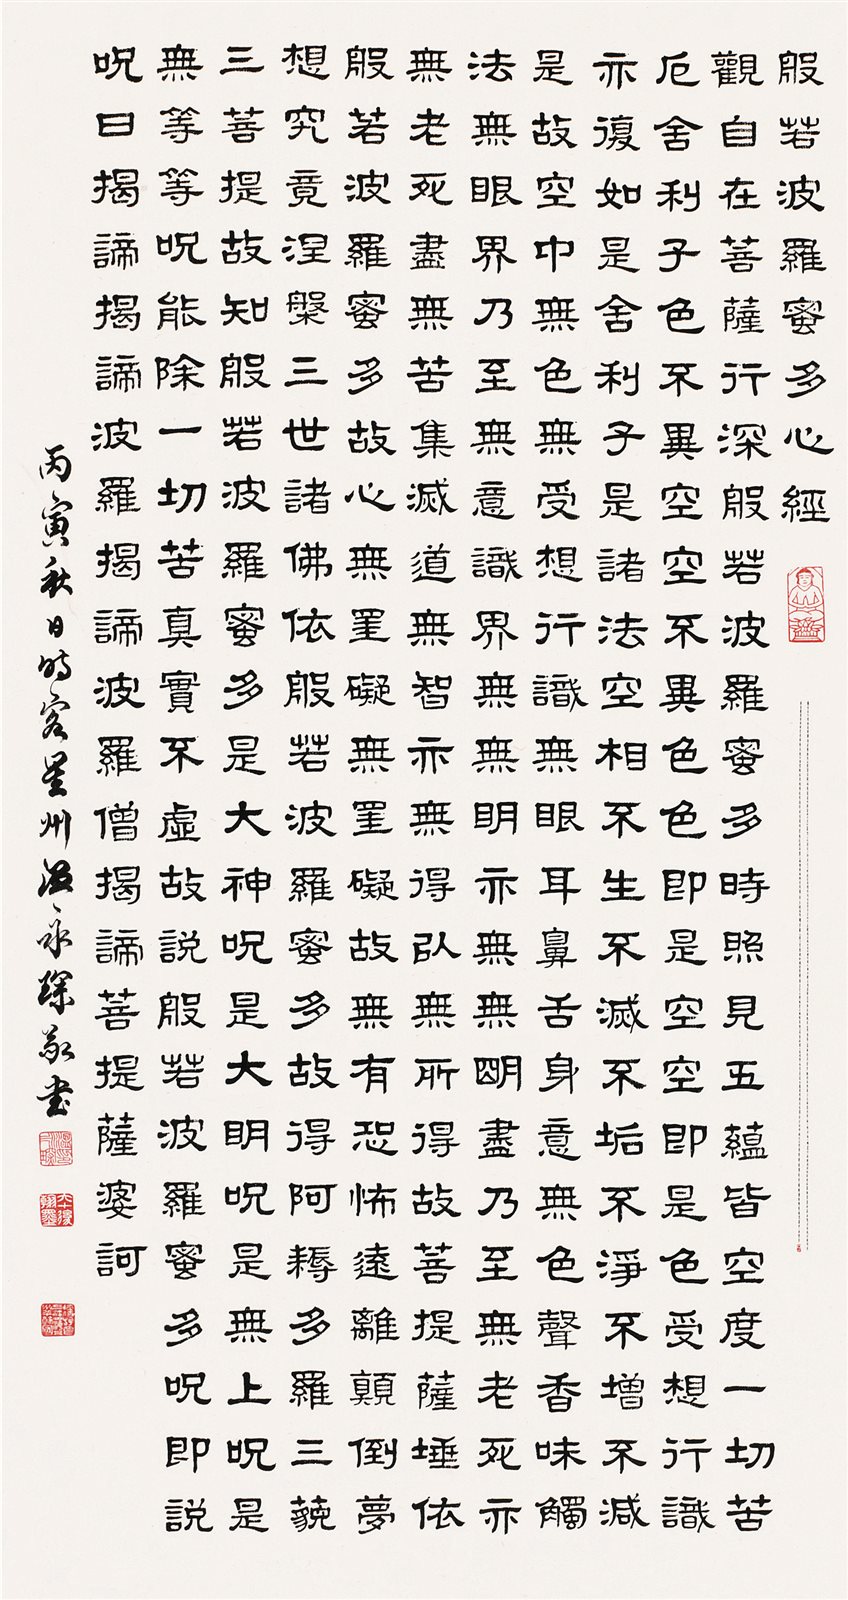 般若波羅蜜多心經
觀自在菩薩行深般若波羅蜜多時照見五蘊皆空度一切苦
厄舍利子色不異空空不異色色即是空空即是色受想行識
亦復如是舍利子是諸法空相不生不滅不垢不淨不增不減
是故空中無色無受想行識無眼耳鼻舌身意無色聲香味觸
法無眼界乃至無意識界無無明亦無無明盡乃至無老死亦
無老死盡無苦集滅道無智亦無得以無所得故菩提薩埵依
般若波羅蜜多故心無罣礙無罣礙故無有恐怖遠離顛倒夢
想究竟涅槃三世諸佛依般若波羅蜜多故得阿耨多羅三藐
三菩提故知般若波羅蜜多是大神呪是大明呪是無上呪是
無等等呪能除一切苦真實不虛故説般若波羅蜜多呪即説
呪曰揭諦揭諦波羅揭諦波羅僧揭諦菩提薩婆訶
丙寅秋日時客星州温永琛敬書